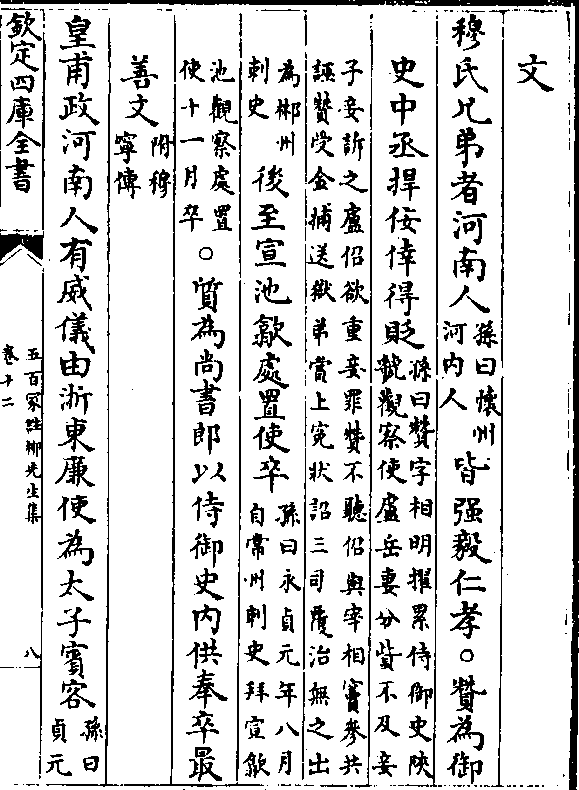 文
穆氏兄弟者河南人孫曰懷州河内人皆强毅仁孝○贊為御
史中丞捍佞倖得貶孫曰贊字相明擢累侍御史陝虢觀察使盧岳妻分貲不及妾
子妾訴之盧佋欲重妾罪贊不聽佋與宰相竇參共誣贊受金捕送獄弟賞上寃狀詔三司覆治無之出
為郴州刺史後至宣池歙處置使卒孫曰永貞元年八月自常州刺史拜宣歙
池觀察處置使十一月卒○質為尚書郎以侍御史内供奉卒最
善文附穆寧傳
皇甫政河南人有威儀由浙東廉使為太子賓客孫曰貞元
欽定四庫全書
五百家註柳先生集
卷十二
八